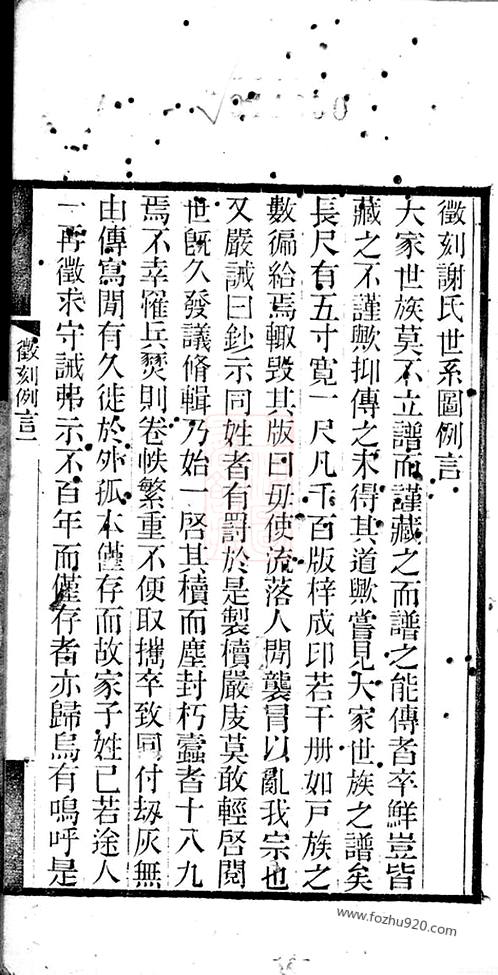 徵刻謝氏世系圖例言
大家世族莫不立譜而謹藏之而譜之能傳者卒鮮豈皆
藏之不謹歟抑傳之未得其道歟嘗見大家世族之譜矣
長尺有五寸寬一尺凡千百版梓成印若干册如戸族之
數徧給焉輙毀其版曰毋使流落人閒襲冒以亂我宗也
又嚴誡曰鈔示同姓者有罰於是製櫝嚴庋莫敢輕啓閱
世旣久發議脩輯乃始一啓其櫝而塵封朽蠧者十八九
焉不幸罹兵燹則卷帙繁重不便取攜卒致同付刼灰無
由傳寫閒有久徙於外孤本僅存而故家子姓已若途人
一再徵求守誡弗示不百年而僅存者亦歸烏有嗚呼是
徵刻例言一
www.fozhu920.com